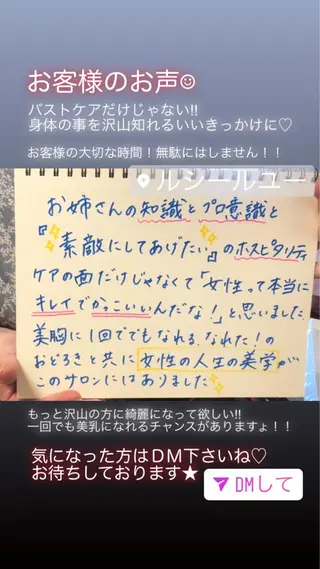 お客様のお声☺
バストケアだけじゃない!!
身体の事を沢山知れるいいきっかけに♡
お客様の大切な時間！無駄にはしません！！
ルシールユー
お姉さんの知識とプロ意識と
『素敵にしてあげたい』のホスピタリティ
ケアの面だけじゃなくて「女性って本当に
キレイでかっこいいんだな！」と思いました
美胸に1回ででもなれる、なれた！の
おどろきと共に女性の人生の美学が
このサロンにはありました
もっと沢山の方に綺麗になって欲しい!!
一回でも美乳になれるチャンスがありますょ！！
気になった方はＤＭ下さいね♡
お待ちしております★
DMして